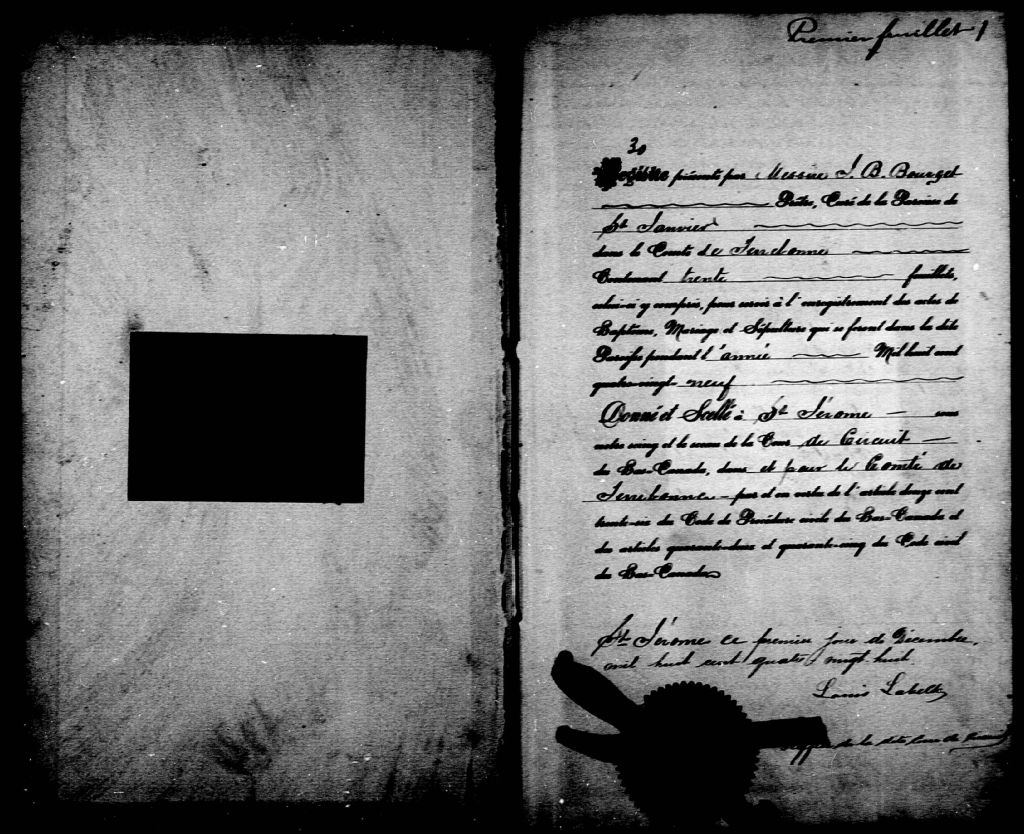 Premier feuillet 1
30
Registre présenté par Messire J. B. Bourget
Prêtre, Curé de la Paroisse de
St Janvier
dans le Comté de Terrebonne
Contenant trente feuillets,
celui-ci y compris, pour servir à l'enregistrement des actes de
Baptême, Mariage et Sépulture qui se feront dans la dite
Paroisse pendant l'année Mil huit cent
quatre-vingt neuf
Donné et Scellé à St Jérome sous
notre seing et le sceau de la Cour de Circuit
du Bas-Canada, dans et pour le Comté de
Terrebonne par et en vertu de l'article douze cent
trente-six du Code de Procédure civile du Bas-Canada et
des articles quarante-deux et quarante-cinq du Code civil
du Bas-Canada
St Jérome ce premier jour de Décembre,
mil huit cent quatre vingt huit
Louis Labelle
Greffier de la dite Cour de Circuit